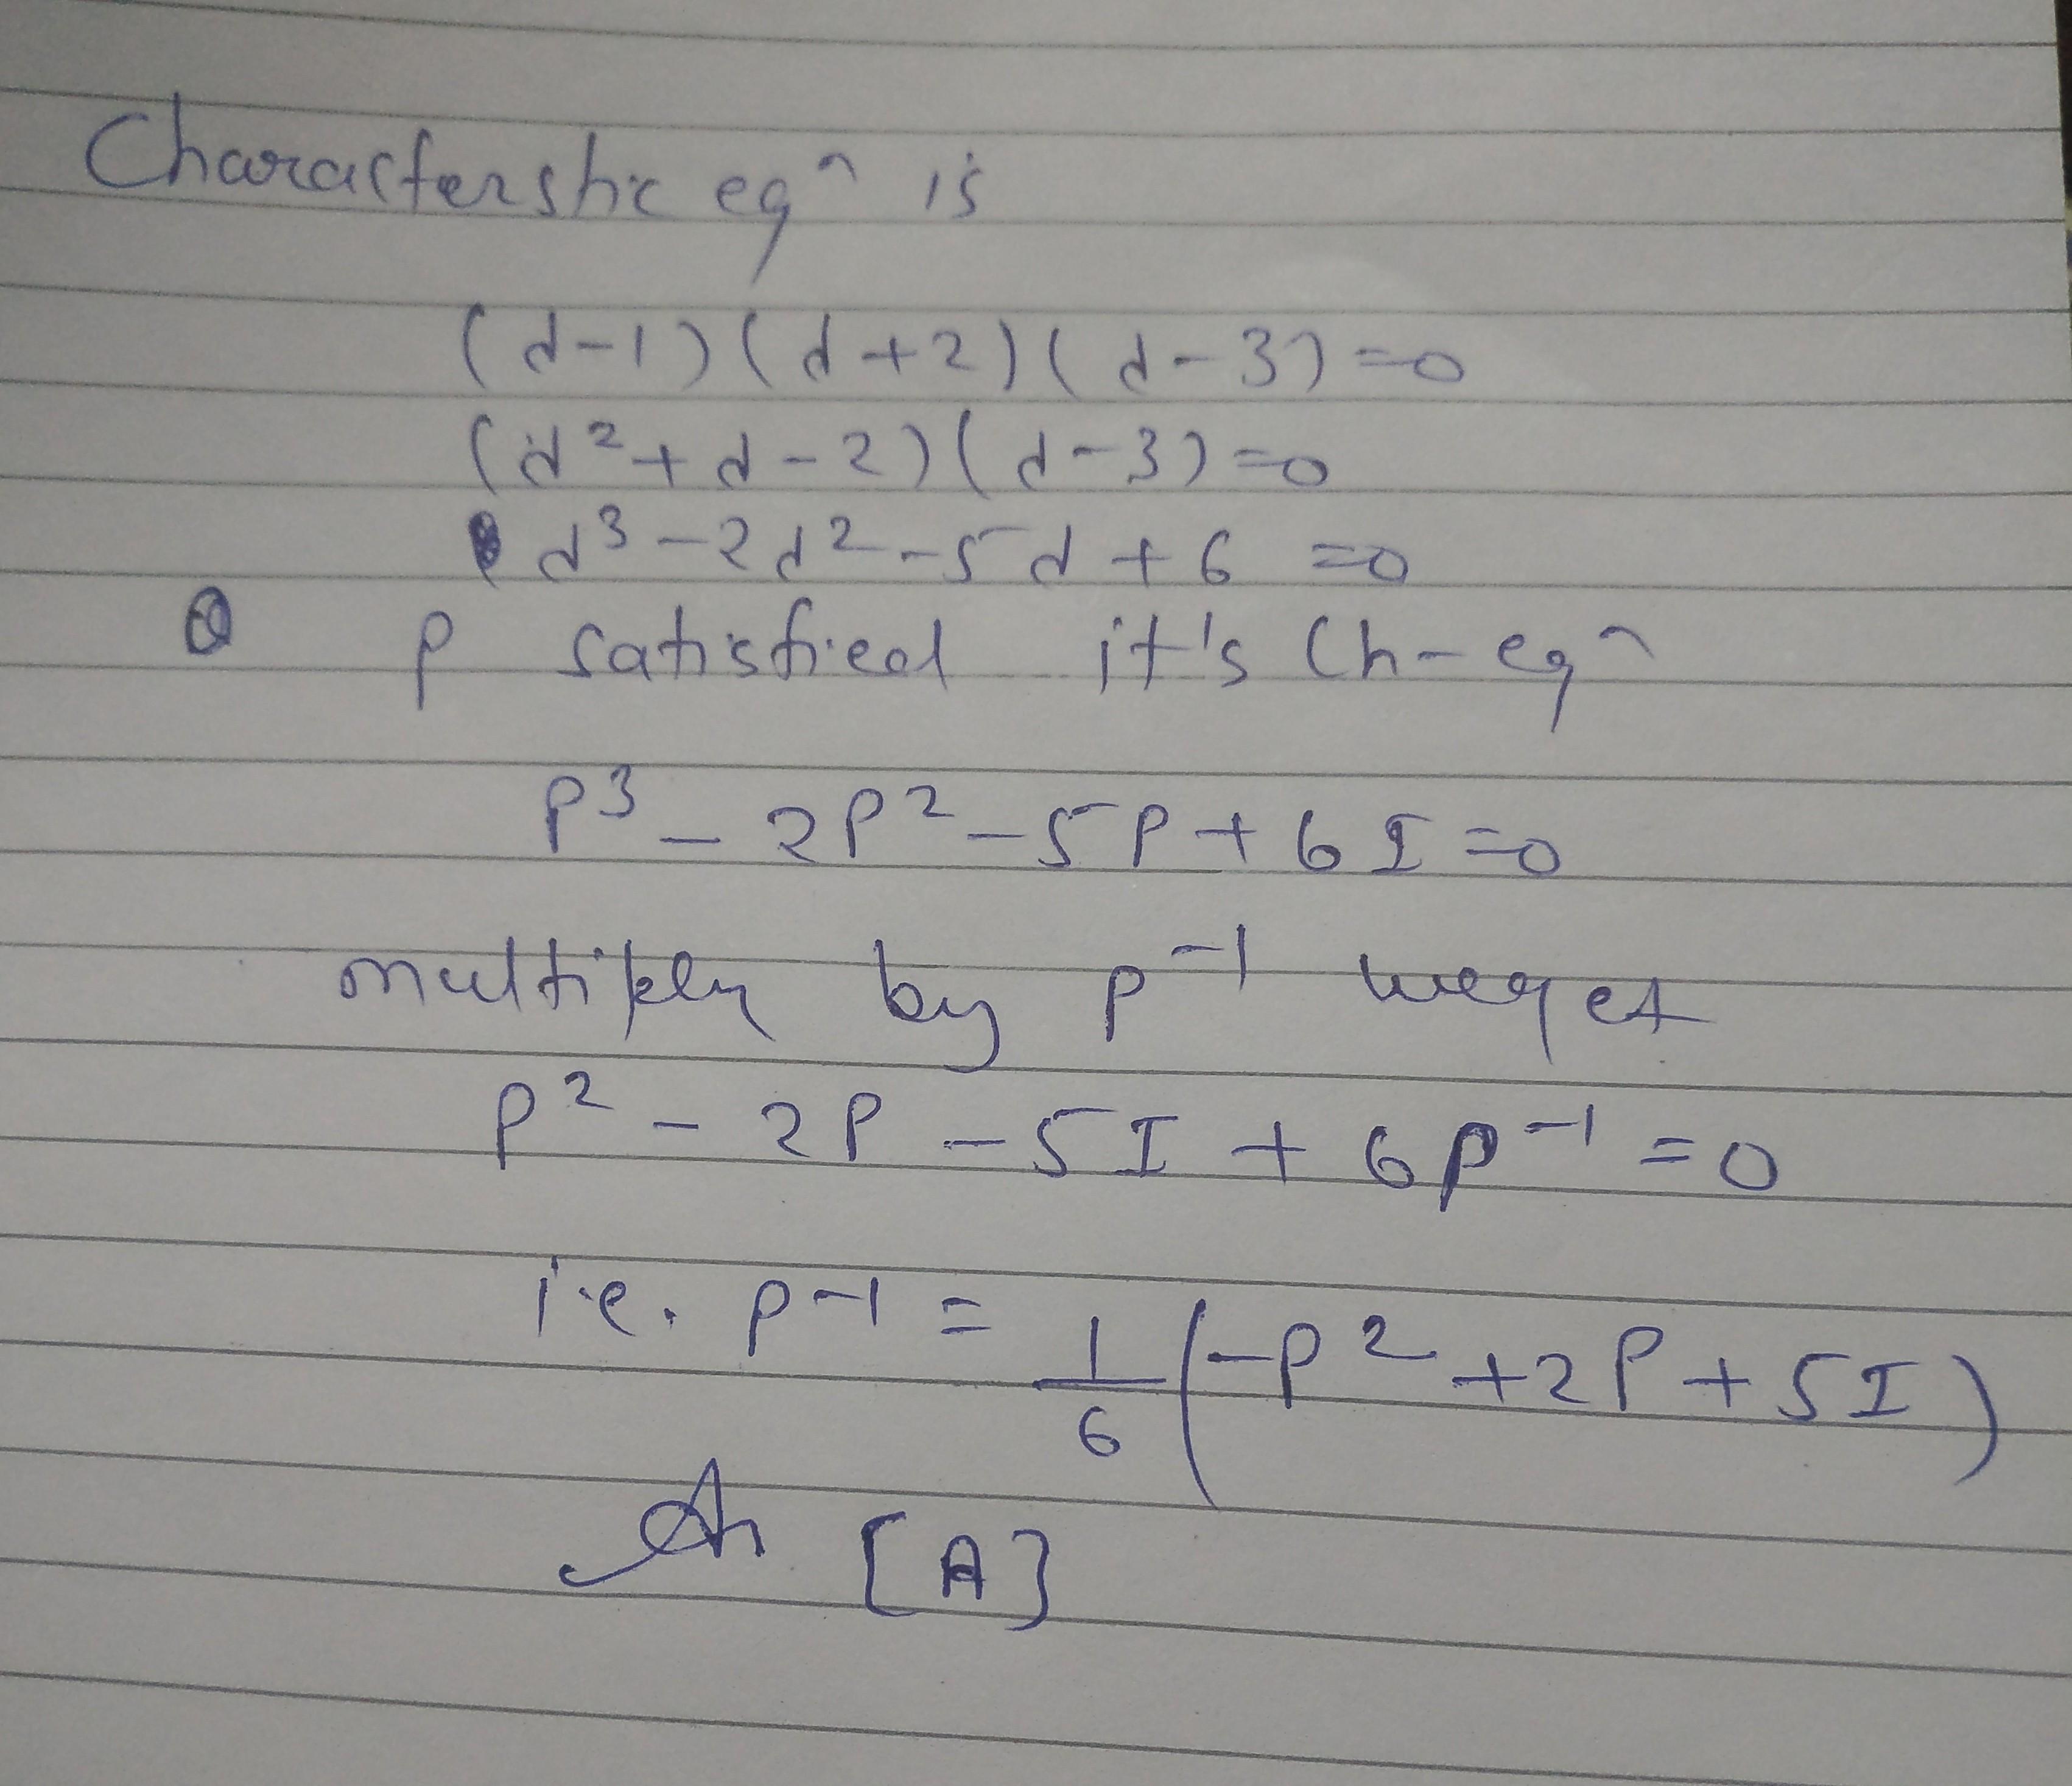 Characterstic eqn is
(d-1)(d+2)(d-3)=0
(d²+d-2)(d-3)=0
d³-2d²-5d+6=0
P satisfied it's Ch-eqn
P³-2P²-5P+6I=0
multiply by P⁻¹ we get
P²-2P-5I+6P⁻¹=0
i.e. P⁻¹=1/6(-P²+2P+5I)
An [A]